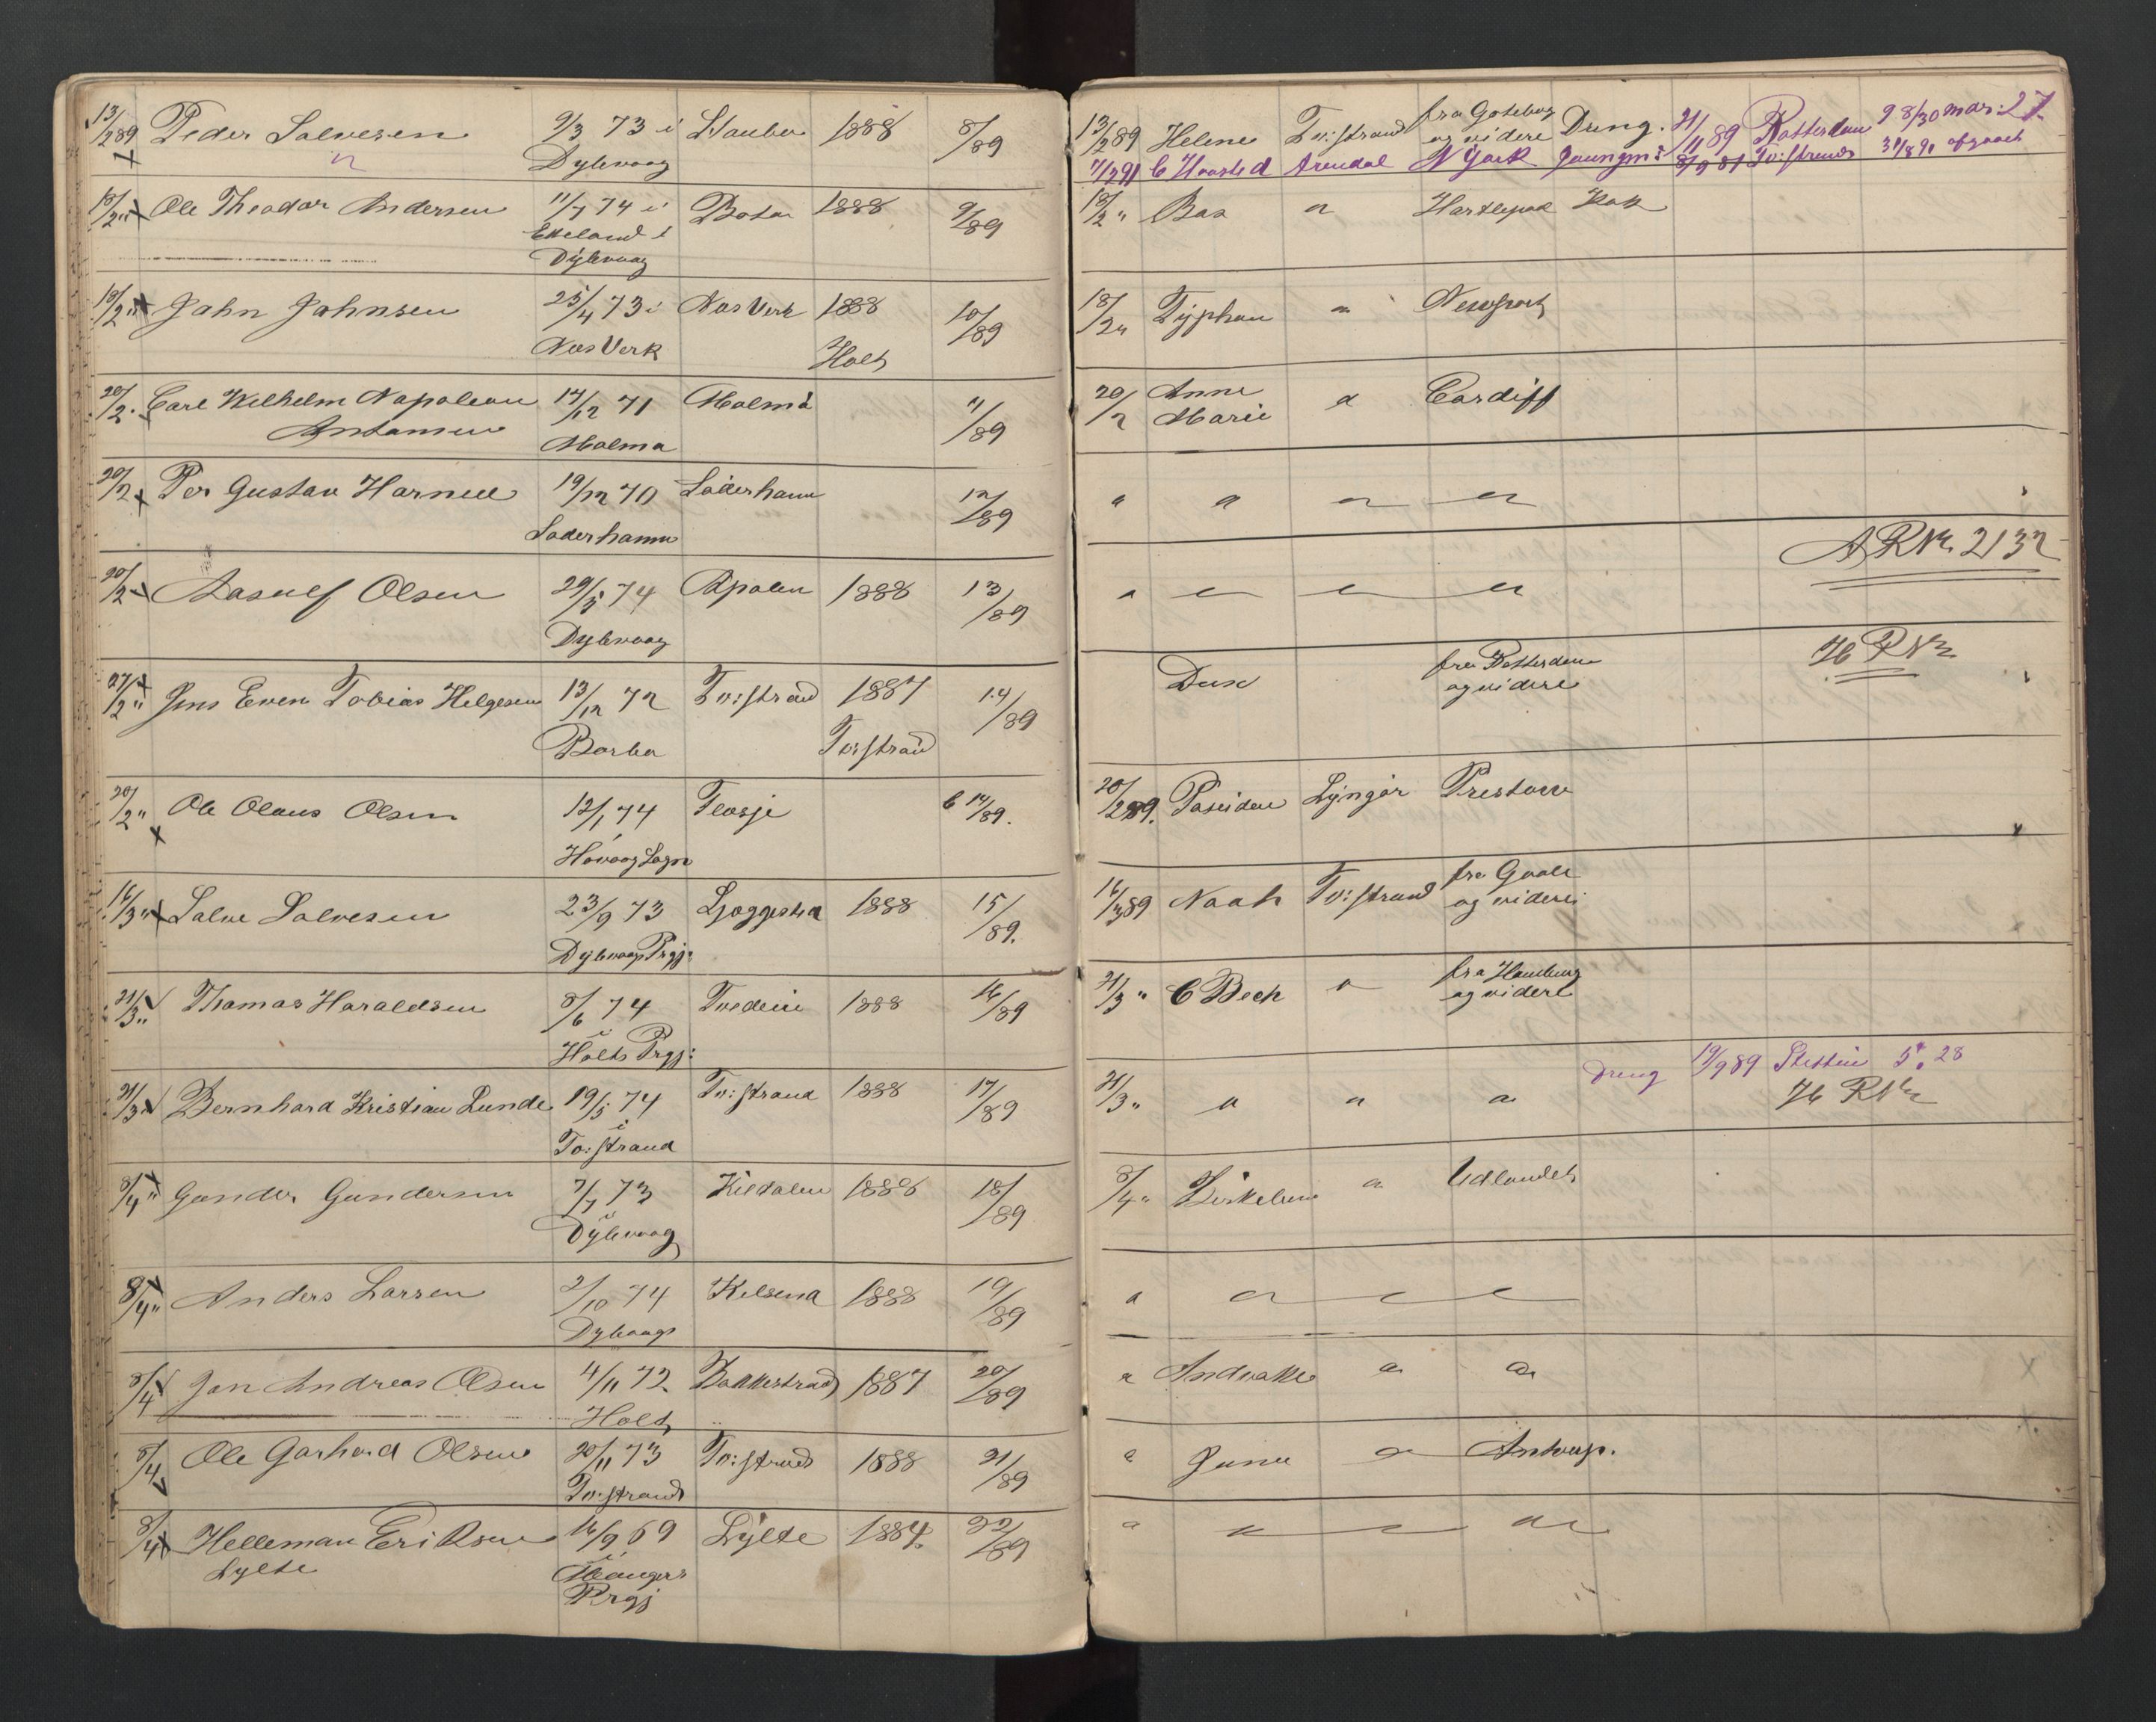 13/2 89 Peder Salvesen 9/3 73 i 1888 8/89
Dybvaag
18/2 " Ole Theodor Andersen 11/7 74 i Bota 1888 9/89
Dybvaag
18/2 " John Johnsen 25/4 73 i Næs Verk 1888 10/89
Næs Verk Holt
20/2 Carl Wilhelm Napoleon 14/12 71 Malmö 11/89
Malmö
20/2 Per Gustav 19/12 70 Söderhamn 12/89
Söderhamn
20/2 Aasulf Olsen 29/5 74 1888 13/89
Dybvaag
27/2 " Jens Even Tobias Helgesen 13/12 72 Tv:strand 1887 14/89
Borbu Tv:strand
20/2 " Ole Olaus Olsen 12/1 74 Flosje b 14/89.
Hövaag Sogn
16/3 " Salve Salvesen 23/9 73 1888 15/89.
Dybvaags Prgj:
21/3 " Thomas Haraldsen 8/6 74 Tvedeie 1888 16/89
i
Holts Prgj:
21/3 " Bernhard Kristian Lunde 19/5 74 Tv:strand 1888 17/89
i
Tv:strand
8/4 " Gunder Gundersen 7/7 73 Kildalen 1888 18/89
i
Dybvaag
8/4 " Anders Larsen 2/10 74 Kilsund 1888 19/89
Dybvaag
8/4 Jon Andreas Olsen 4/11 72 Bakkestrand 1887 20/89
Holt
8/4 Ole Gerhard Olsen 20/11 73 Tv:strand 1888 21/89
Tv:strand
8/4 Helleman Eriksen 16/9 69 Lylte 1884. 22/89
Lylte i
Mangers
Prgj
13/2 89 Helene Tv:strand fra Goteborg og videre Dreng. 21/11 89 Rotterdam 9 8/30 mdr: 27
Arendal N York Jungm: Tv:strand afgaaet
18/2 " Bas " Hartlepool Kok
18/2 " Typhon " Newport
20/2 Anne Marie " Cardiff
" " " "
A R Nr 2132
" " " "
Dux fra Rotterdam og videre H R Nr
20/2 89. Poseidon Lyngör Preston
16/3 89 Noah Tv:strand fra Goole og videre
21/3 " C Bech " fra Hamburg og videre
Dreng 19/9 89 Stettin 5. 28
21/3 " " " " H R Nr
8/4 " " Udlandet
" " " "
" Andvake " "
" Juno " Antwerp.
" " " "